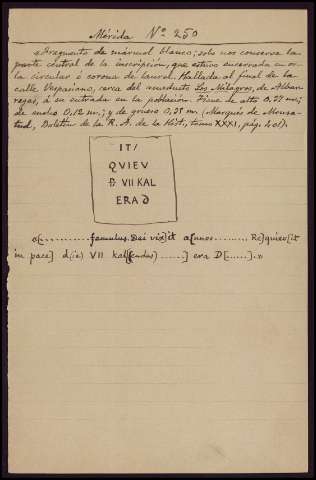 Mérida Nº 250
«Fragmento de mármol blanco; solo nos conserva la
parte central de la inscripción, que estuvo encerrada en or-
la circular ó corona de laurel. Hallada al final de la
calle Vespasiano, cerca del acueducto Los Milagros, de Alban-
regas, á su entrada en la población. Tiene de alto 0,27 m.;
de ancho 0,12 m.; y de grueso 0,25 m. (Marqués de Monsa-
lud, Boletín de la R. A. de la Hist, tomo XXXI, pág. 401).
IT/
QVIEV
D VII KAL
ERA D
o[............famulus. Dei vix]it a[nnos......... Re]quiev[it
in pace] d(ie) VII kal[(endas) ......] era D[......].»